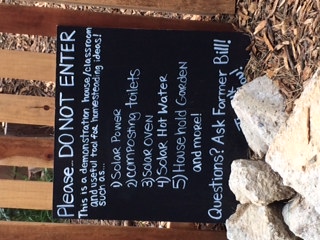 Please DO NOT ENTER
This is a demonstration house/classroom
and useful tool for homesteading ideas!
such as...
1) Solar Power
2) composting toilets
3) Solar oven
4) Solar Hot Water
5) Household Garden
and more!
Questions? Ask Farmer Bill!